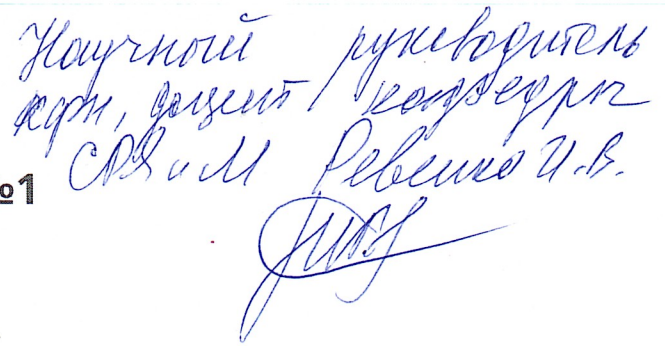 Научный руководитель
кфн, доцент кафедры
СРЯиМ Ревенко И.В.
№1